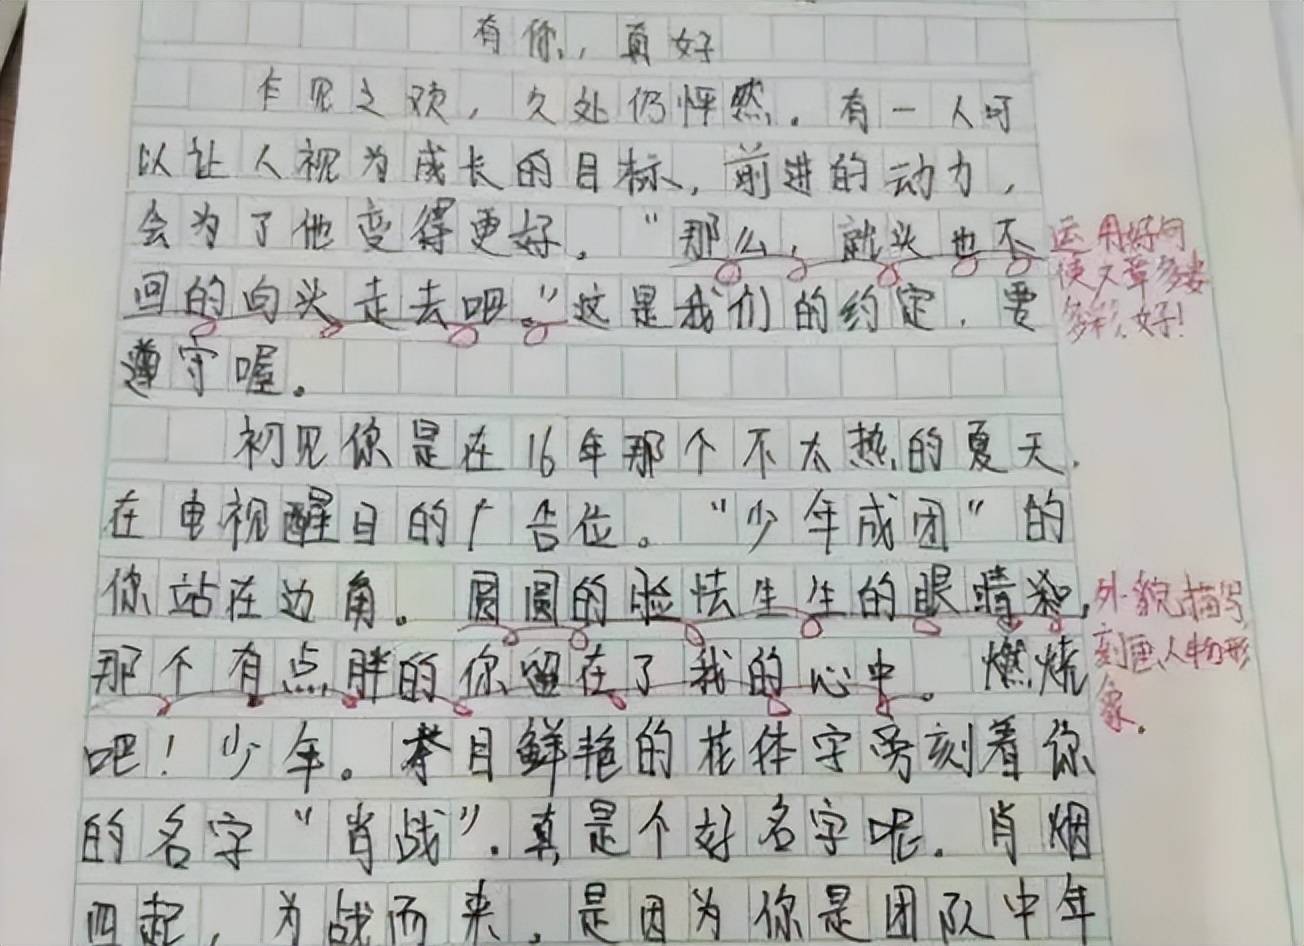 有你,，真好
乍见之欢，久处仍怦然。有一人可
以让人视为成长的目标，前进的动力，
会为了他变得更好。“那么，就头也不
回的向头走去吧。”这是我们的约定，要
遵守喔。
初见你是在16年那个不太热的夏天，
在电视醒目的广告位。“少年成团”的
你站在边角。圆圆的脸怯生生的眼睛和，
那个有点胖的你留在了我的心中。燃烧
吧！少年。夺目鲜艳的花体字旁刻着你
的名字“肖战”。真是个好名字呢。肖烟
四起，为战而来，是因为你是团队中年
运用好句
使文章多姿
多彩，好！
外貌描写，
刻画人物形
象。